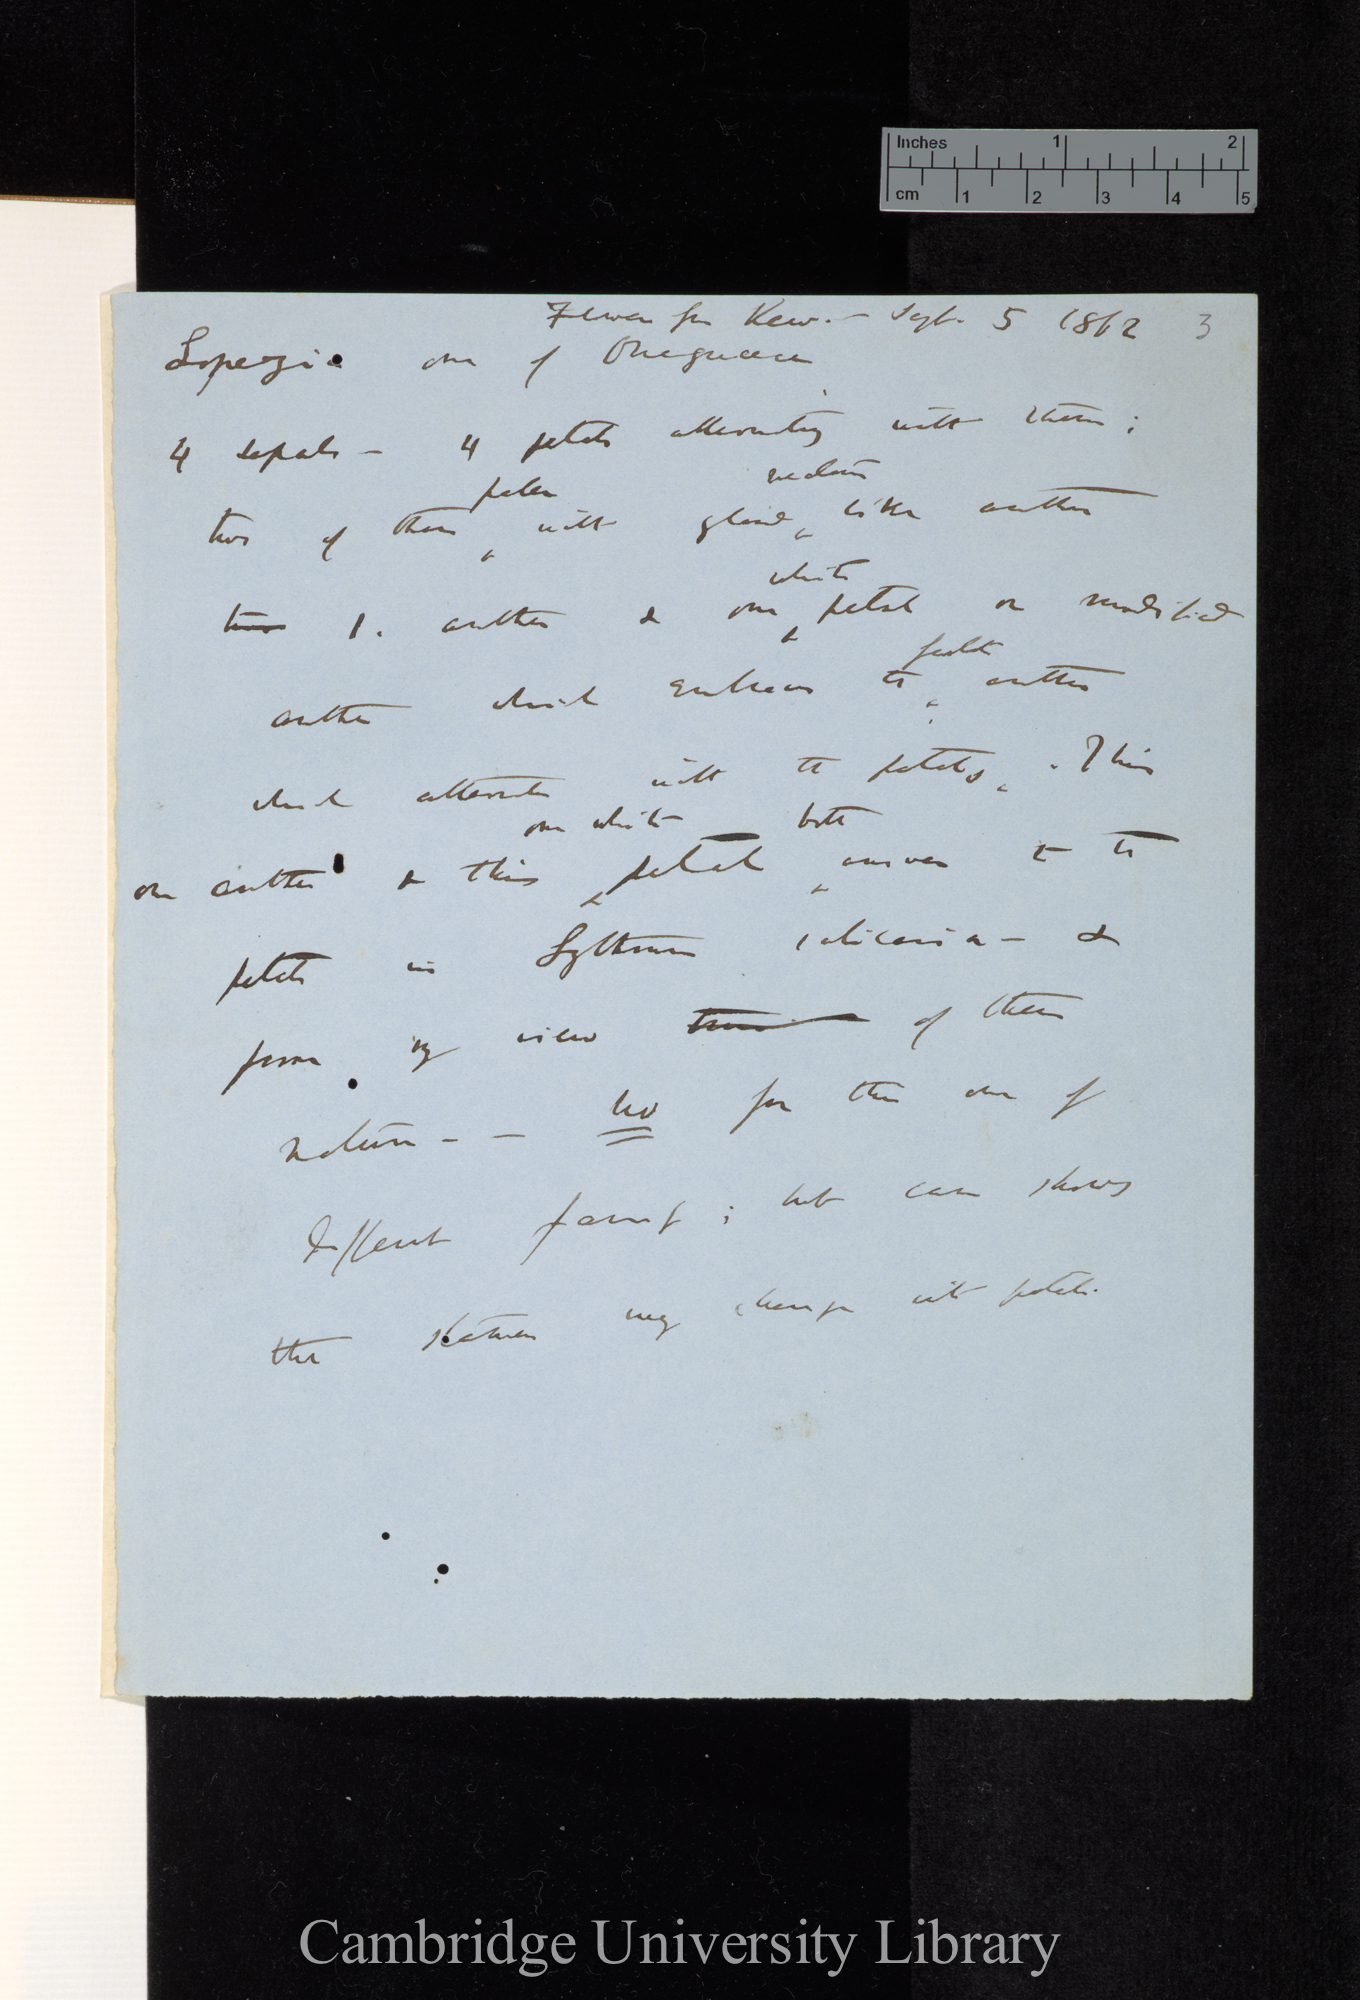 Inches 1 2
cm 1 2 3 4 5
Flower from Kew. — Sept. 5 1862 3
Lopezia one of Onagraceæ
4 sepals — 4 petals alternating with them;
nectar
two of them with gland like anther
white
two 1. anther & one petal or modified
anther which embraces the anther
which alternates with the petals. This
one white both
one anther & this petal answer to the
petals in Lythrum salicaria — & 
from my view of them
nature — — No for this one of
different family; but case shows
that stamen may change into petals.
Cambridge University Library